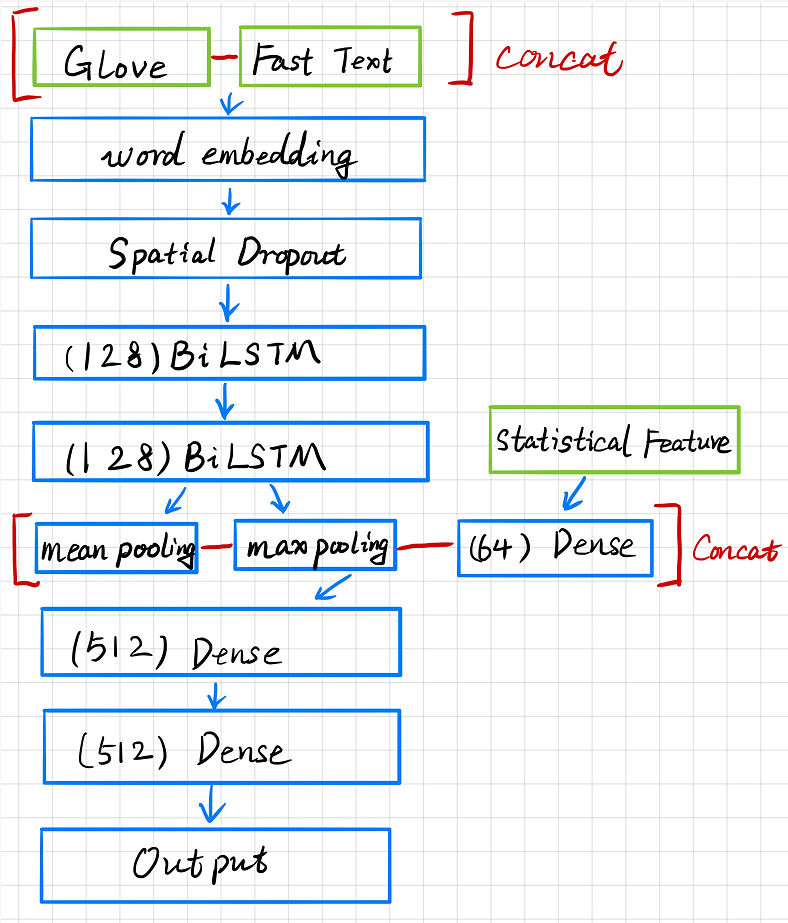 GLove Fast Text Concat
word embedding
Spatial Dropout
(128) BiLSTM
(128) BiLSTM
Statistical Feature
mean pooling max pooling (64) Dense Concat
(512) Dense
(512) Dense
Output